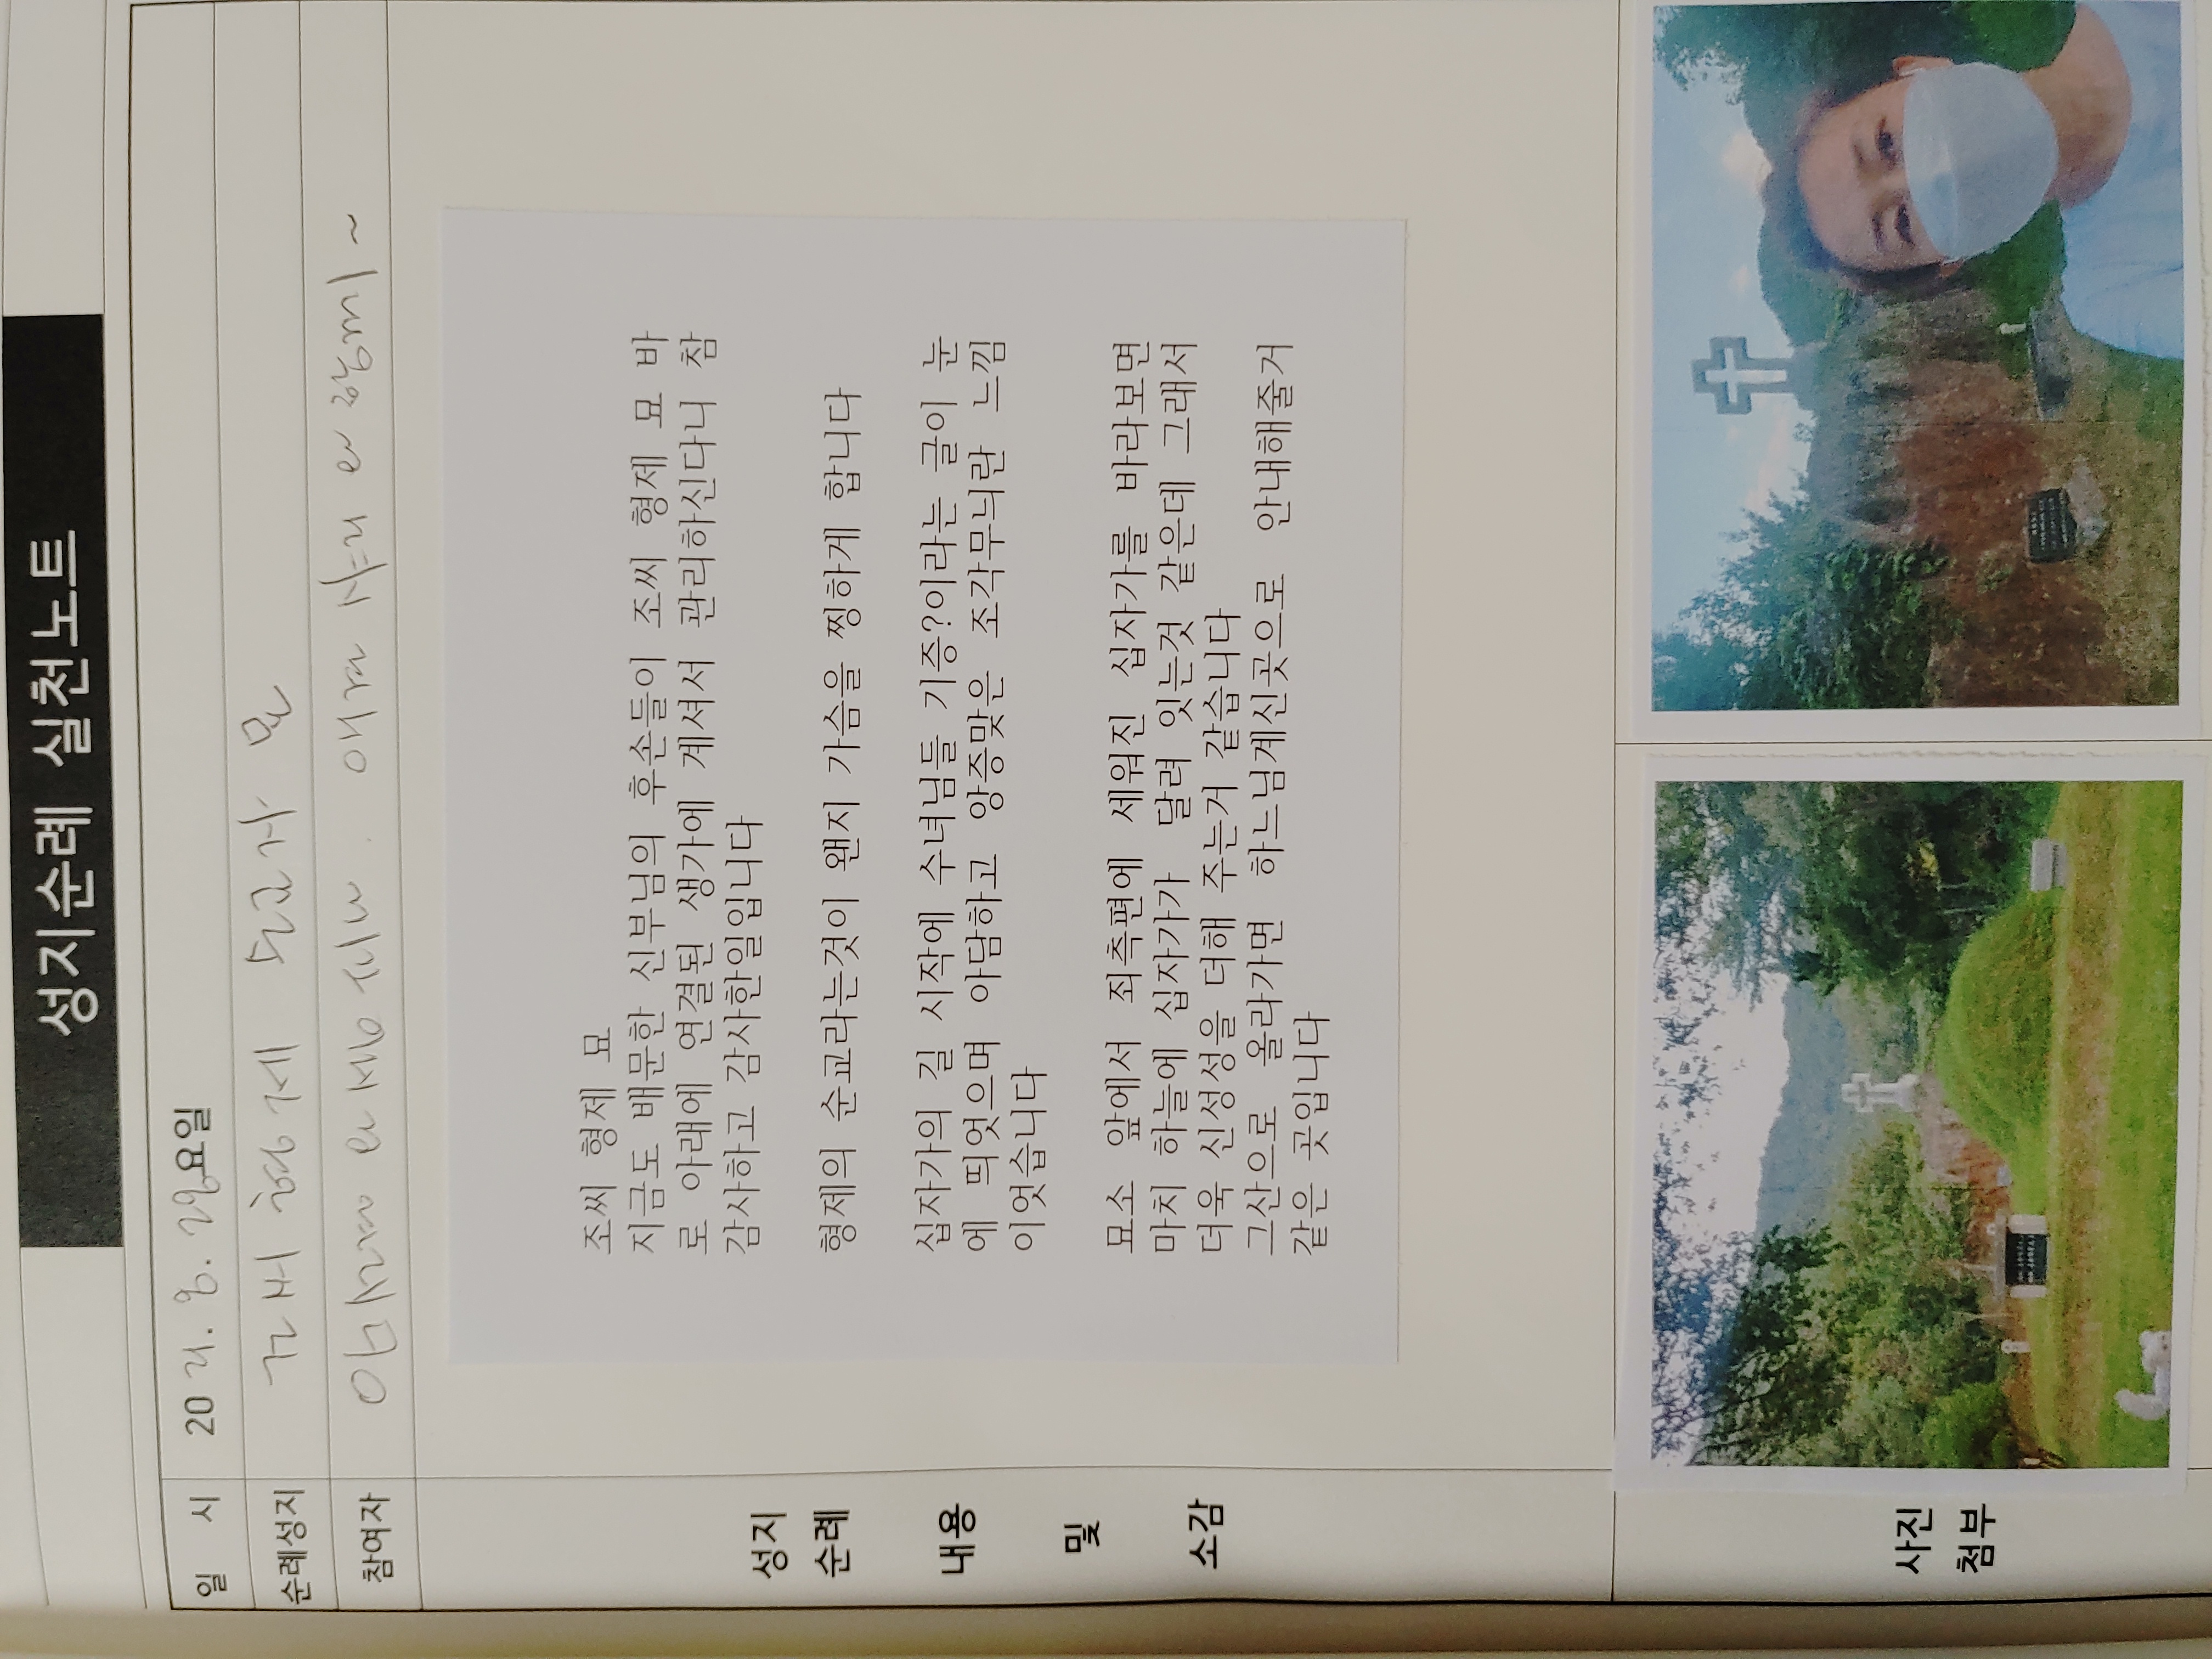 성지순례 실천노트
일 시 2021. 8. 29요일
순례성지 조씨 형제 순교자 묘
참여자
성지
순례
내용
및
소감
조씨 형제 묘
지금도 배문한 신부님의 후손들이 조씨 형제 묘 바
로 아래에 연결된 생가에 계셔서 관리하신다니 참
감사하고 감사한일입니다
형제의 순교라는것이 왠지 가슴을 찡하게 합니다
십자가의 길 시작에 수녀님들 기증?이라는 글이 눈
에 띄엇으며 아담하고 앙증맞은 조각무늬란 느낌
이엇습니다
묘소 앞에서 좌측편에 세워진 십자가를 바라보면
마치 하늘에 십자가가 달려 잇는것 같은데 그래서
더욱 신성성을 더해 주는거 같습니다
그산으로 올라가면 하느님계신곳으로 안내해줄거
같은 곳입니다
사진
첨부